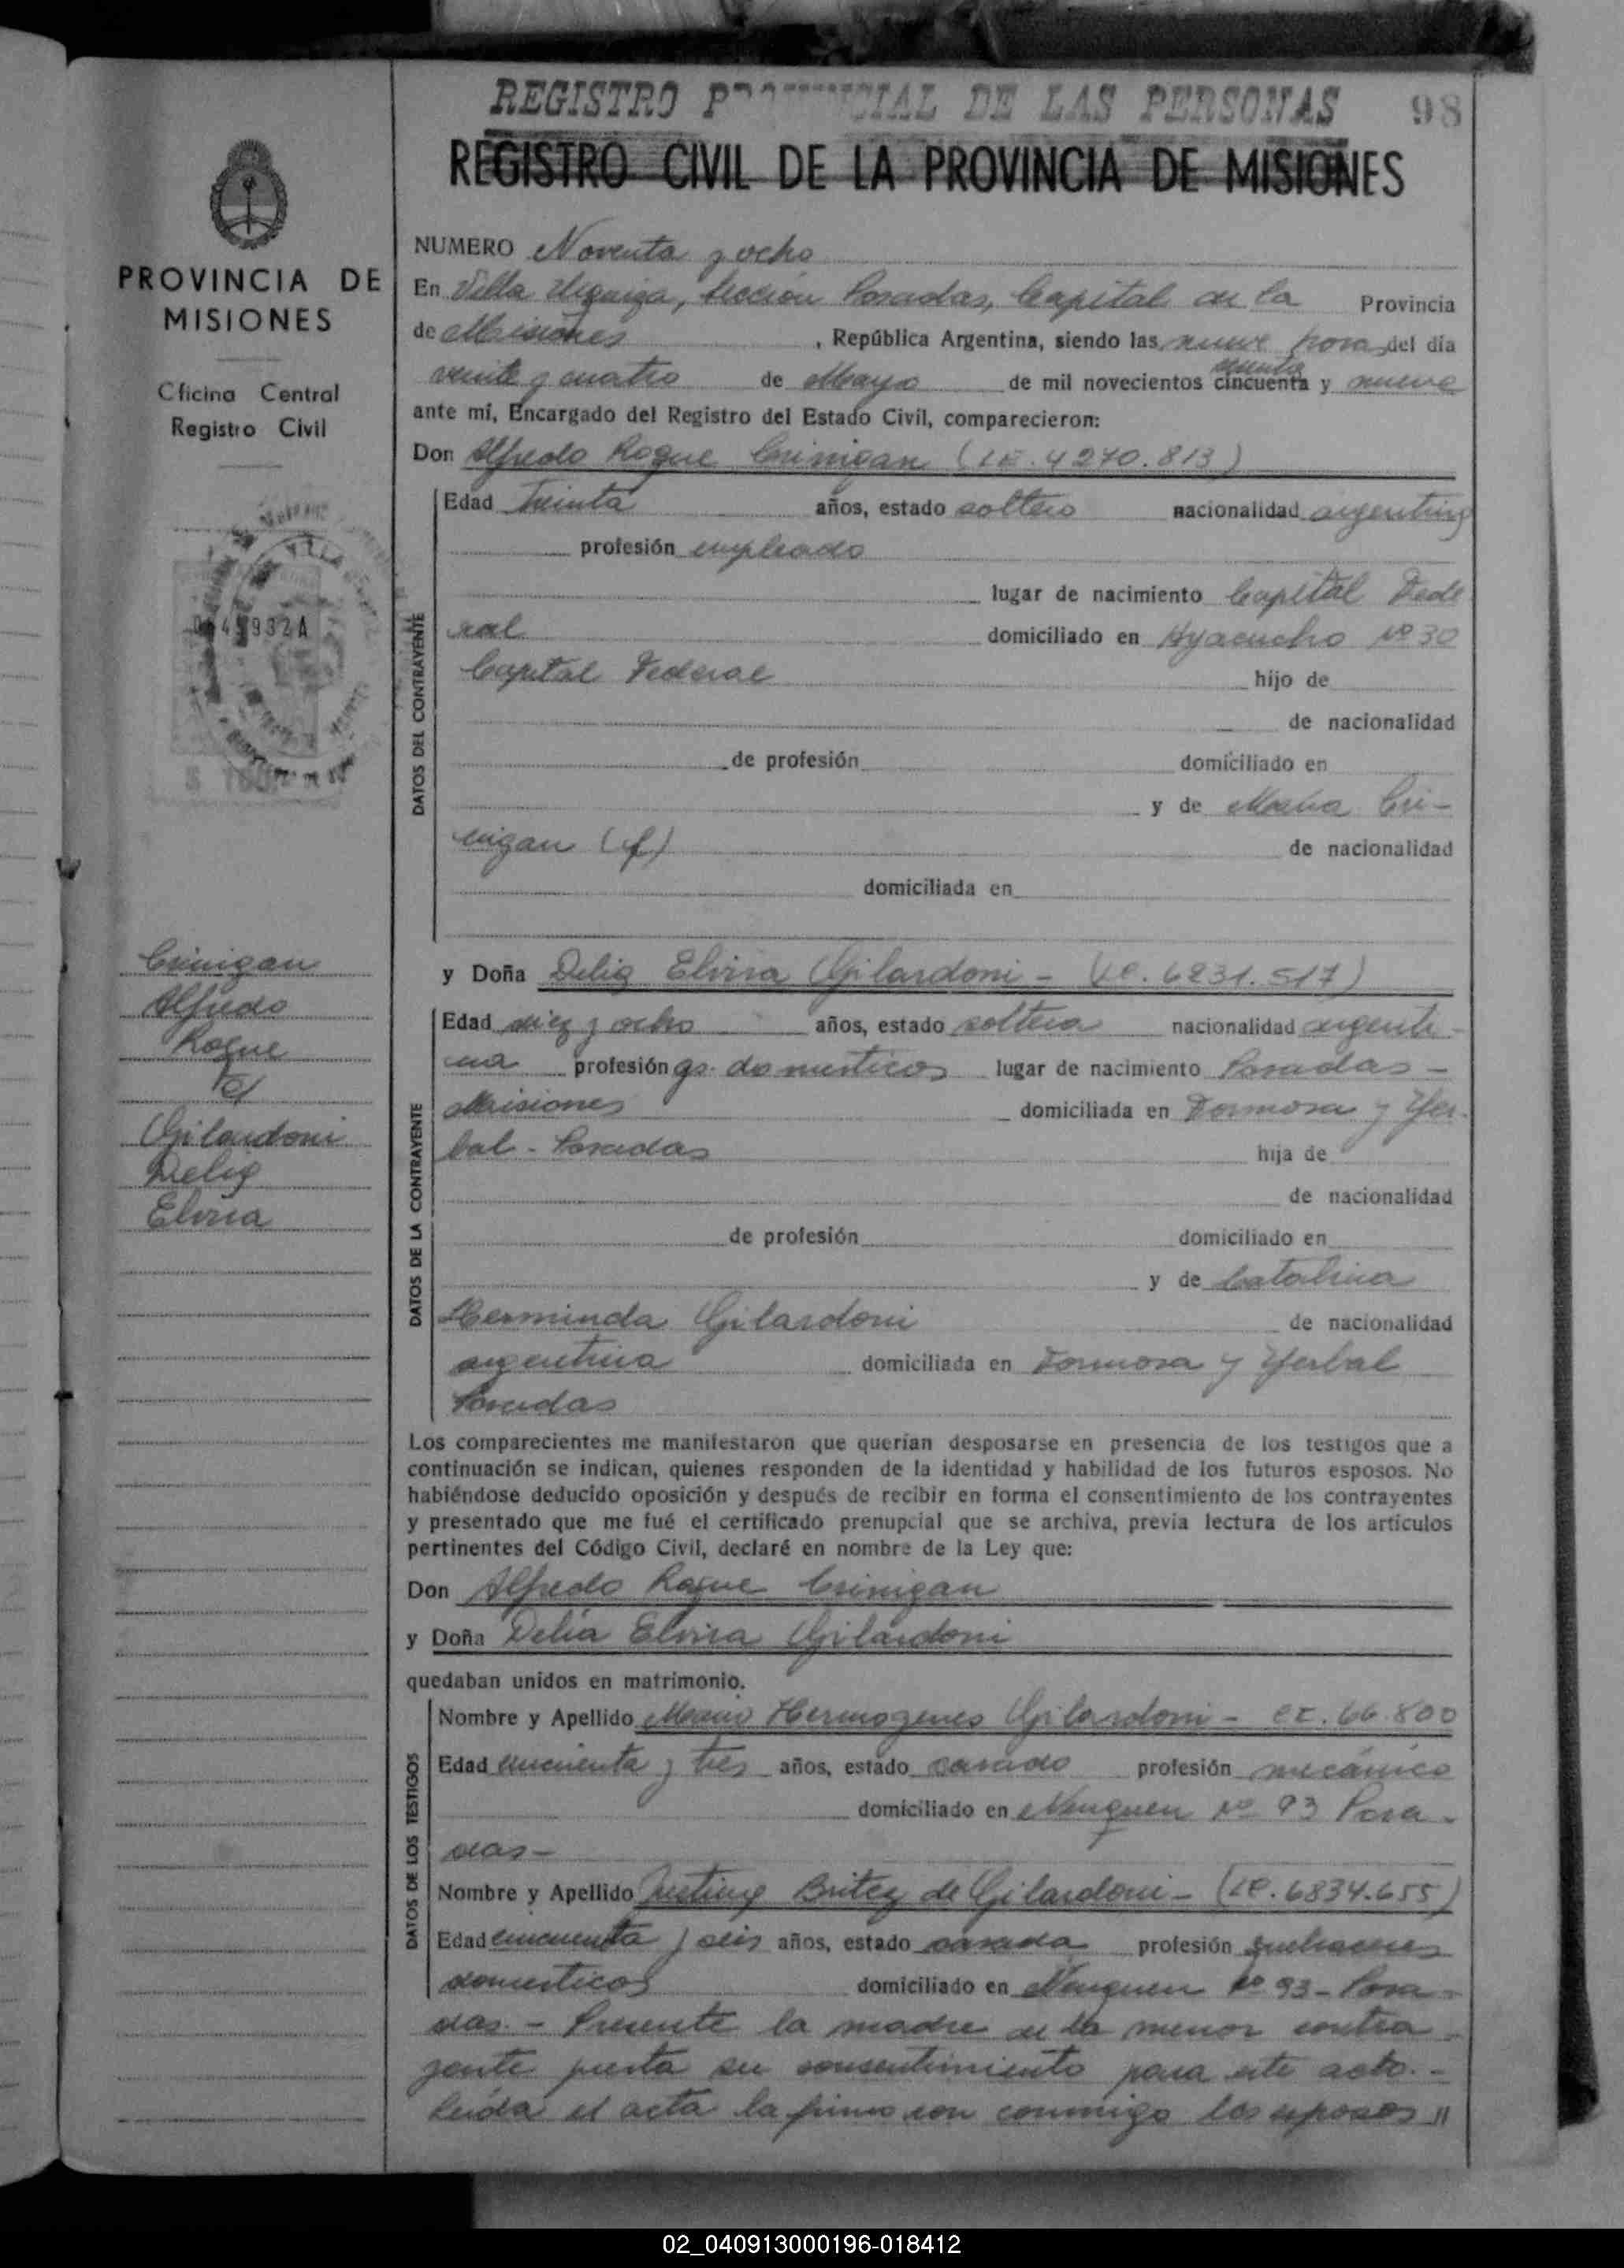 REGISTRO PROVINCIAL DE LAS PERSONAS 98
REGISTRO CIVIL DE LA PROVINCIA DE MISIONES
PROVINCIA DE
MISIONES
Oficina Central
Registro Civil
Crinigan
Alfredo
Roque
c/
Gilardoni
Delia
Elvira
NUMERO Noventa y ocho
En Villa Urquiza, Sección Posadas, Capital de la Provincia
de Misiones, República Argentina, siendo las nueve horas del día
veinte y cuatro de Mayo de mil novecientos cincuenta sesenta y nueve
ante mí, Encargado del Registro del Estado Civil, comparecieron:
Don Alfredo Roque Crinigan (LE. 4270.813)
DATOS DEL CONTRAYENTE
Edad Treinta años, estado soltero nacionalidad argentino
profesión empleado
lugar de nacimiento Capital Fede
ral domiciliado en Ayacucho Nº 30
Capital Federal hijo de
de nacionalidad
de profesión domiciliado en
y de María Cri-
nigan (f) de nacionalidad
domiciliada en
y Doña Delia Elvira Gilardoni - (LC. 6231.517)
DATOS DE LA CONTRAYENTE
Edad diez y ocho años, estado soltera nacionalidad argenti-
na profesión qs. domesticos lugar de nacimiento Posadas -
Misiones domiciliada en Formosa y Yer-
bal - Posadas hija de
de nacionalidad
de profesión domiciliado en
y de Catalina
Herminda Gilardoni de nacionalidad
argentina domiciliada en Formosa y Yerbal
Posadas
Los comparecientes me manifestaron que querían desposarse en presencia de los testigos que a
continuación se indican, quienes responden de la identidad y habilidad de los futuros esposos. No
habiéndose deducido oposición y después de recibir en forma el consentimiento de los contrayentes
y presentado que me fué el certificado prenupcial que se archiva, previa lectura de los artículos
pertinentes del Código Civil, declaré en nombre de la Ley que:
Don Alfredo Roque Crinigan
y Doña Delia Elvira Gilardoni
quedaban unidos en matrimonio.
DATOS DE LOS TESTIGOS
Nombre y Apellido Mario Hermogenes Gilardoni - CI. 66.800
Edad cincuenta y tres años, estado casado profesión mecánico
domiciliado en Neuquen Nº 93 Posa-
das -
Nombre y Apellido Justina Britez de Gilardoni - (LC. 6834.655)
Edad cincuenta y seis años, estado casada profesión quehaceres
domesticos domiciliado en Neuquen Nº 93 - Posa-
das. - Presente la madre de la menor contra-
yente presta su consentimiento para este acto. -
Leída el acta la firmaron conmigo los esposos "
02_040913000196-018412